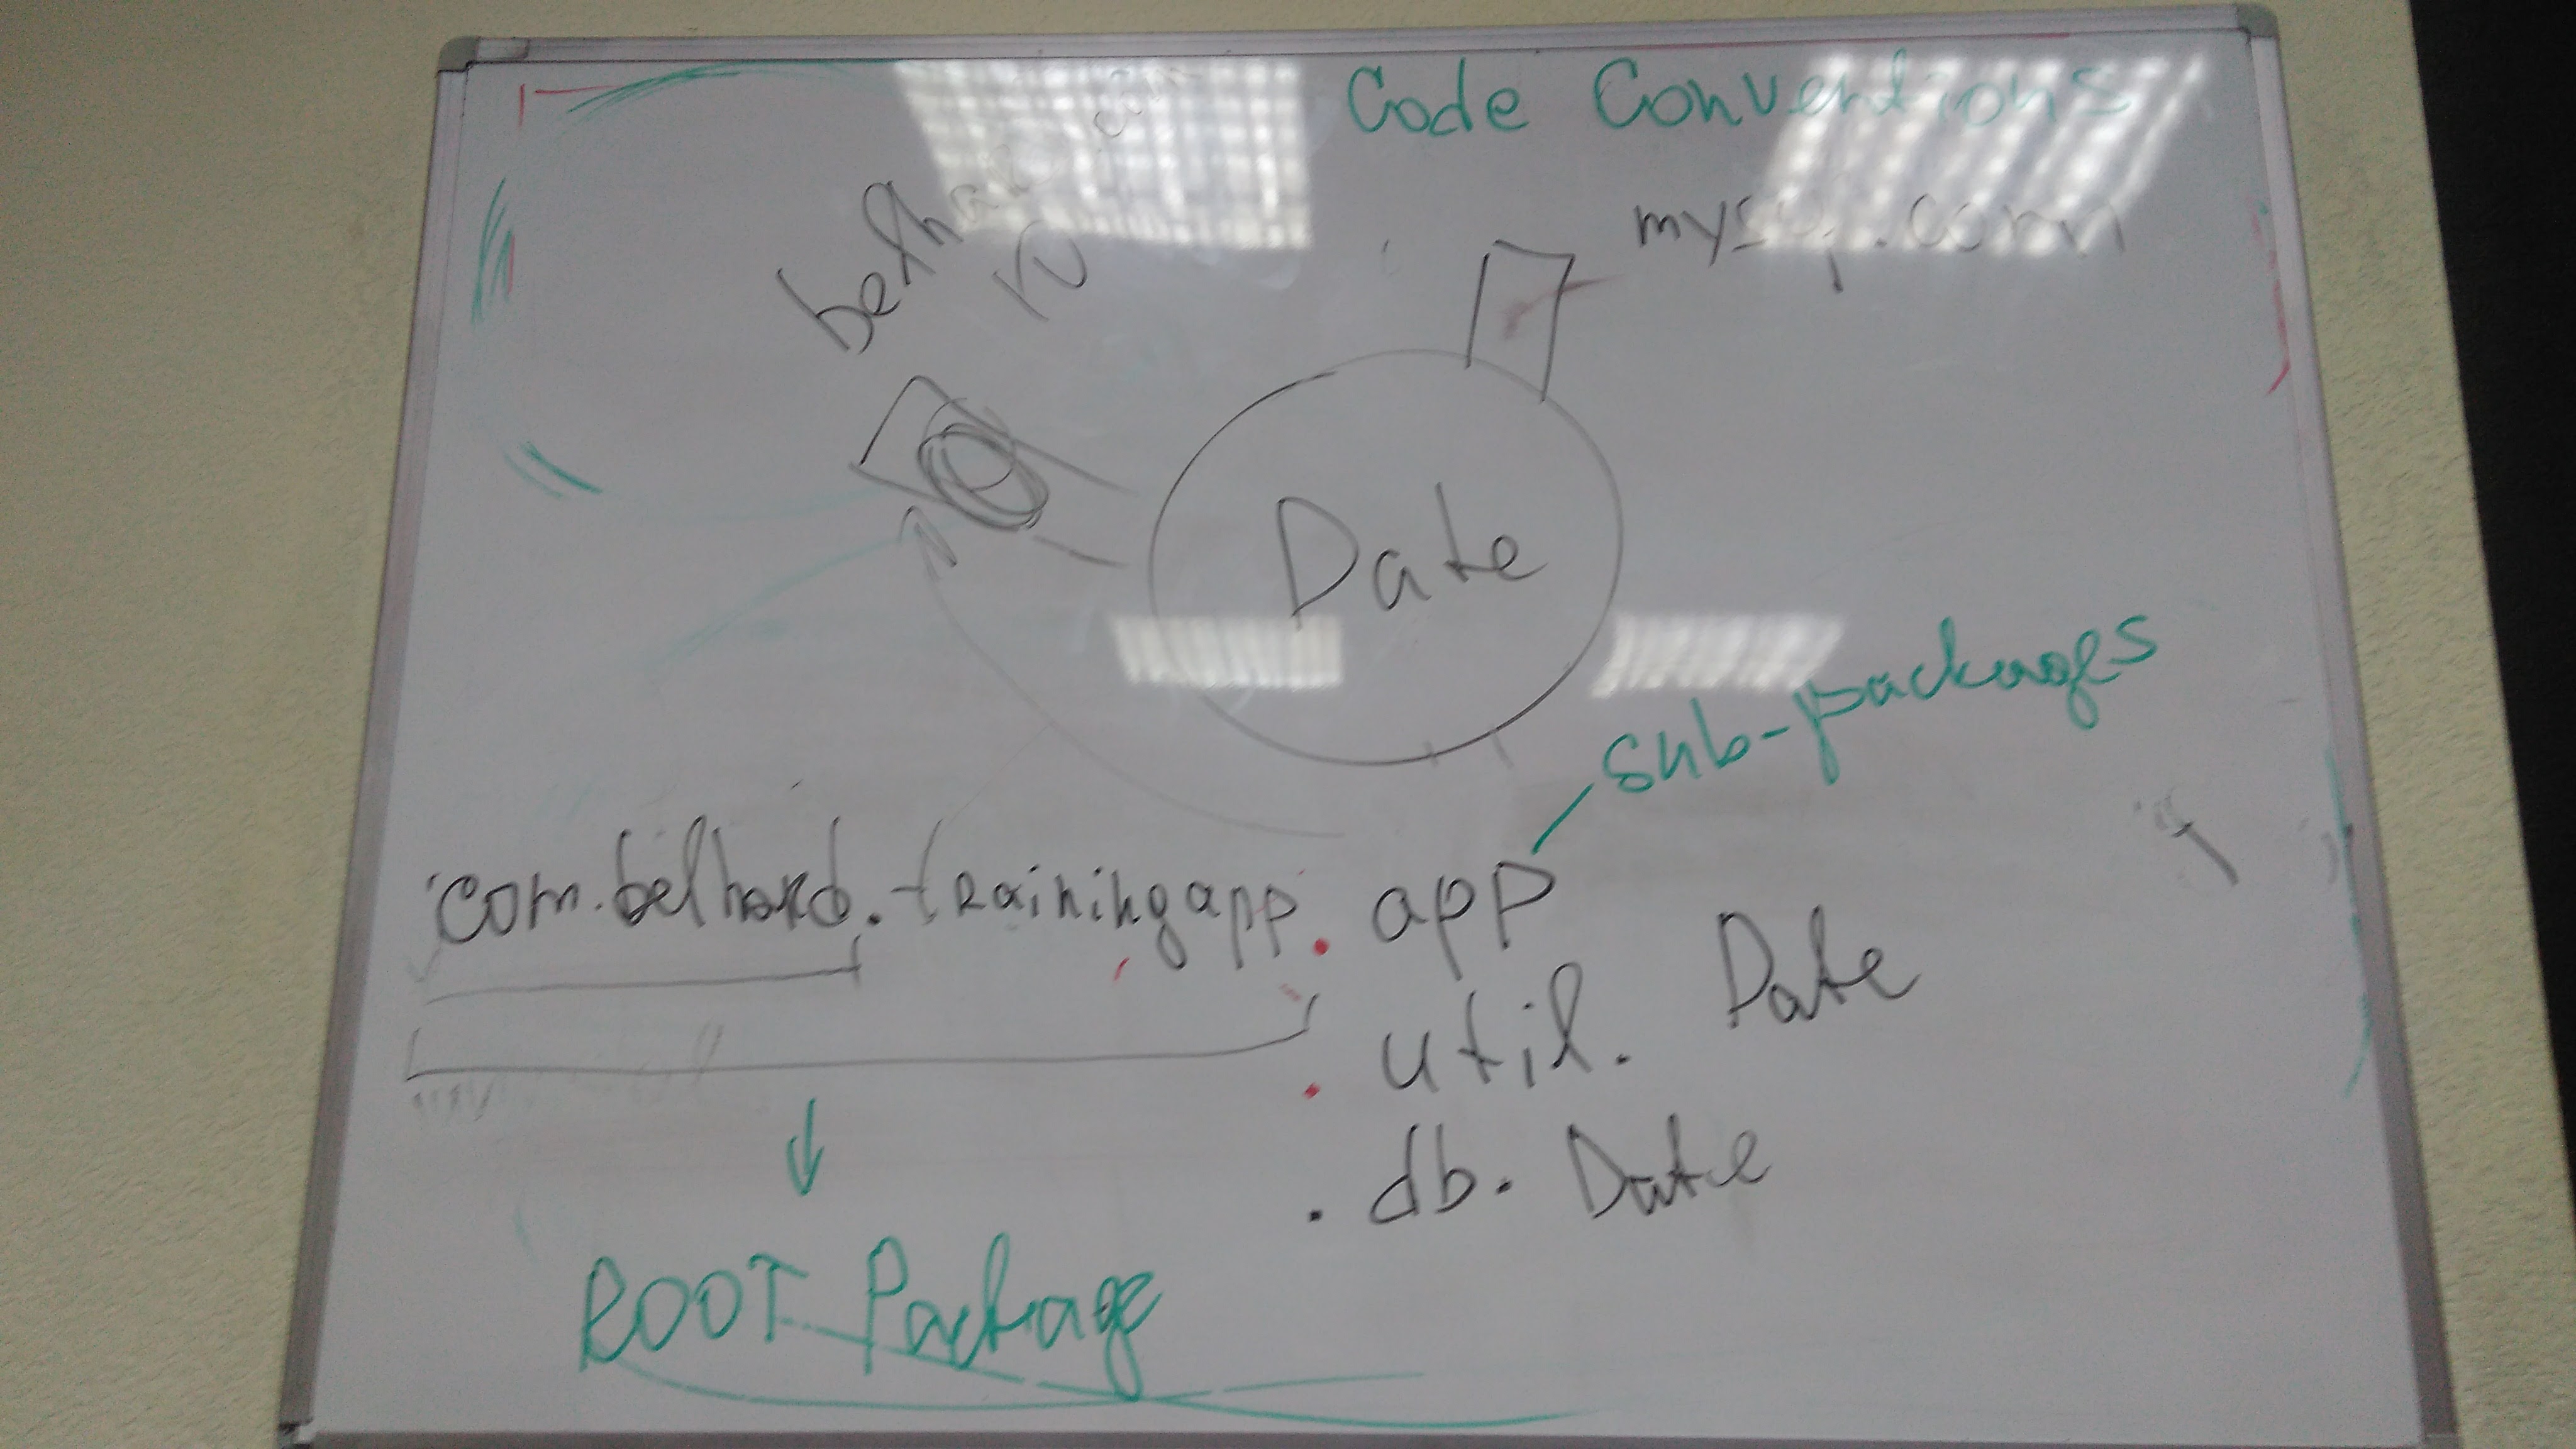 Code Conventions
belhard.com
ru
mysql.com
Date
sub-packages
com.belhard.trainingapp. app
. util. Date
. db. Date
ROOT Package